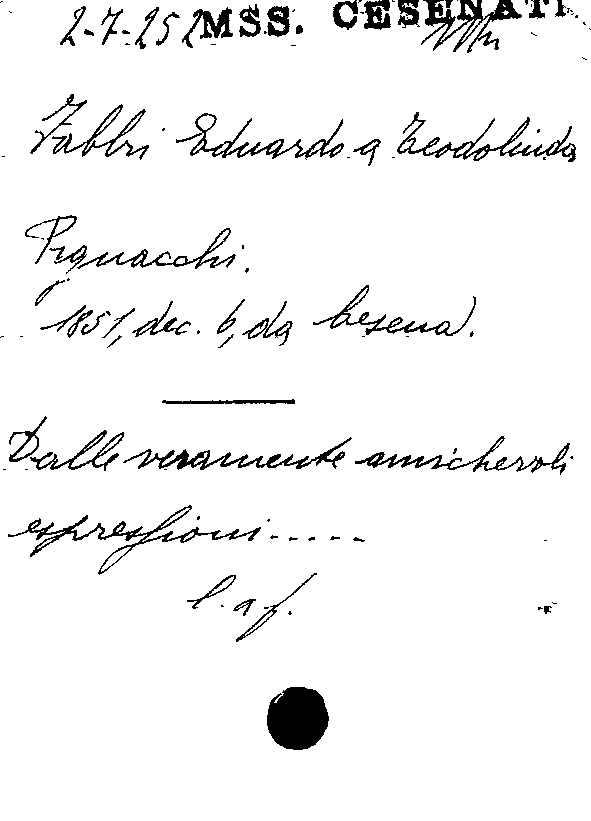 2-7-252 MSS. CESENATI
Fabbri Eduardo a Teodolinda
Pignacchi.
1851, dec. 6, da Cesena).
Dalle veramente amichevoli
espressioni.....
l. a f.